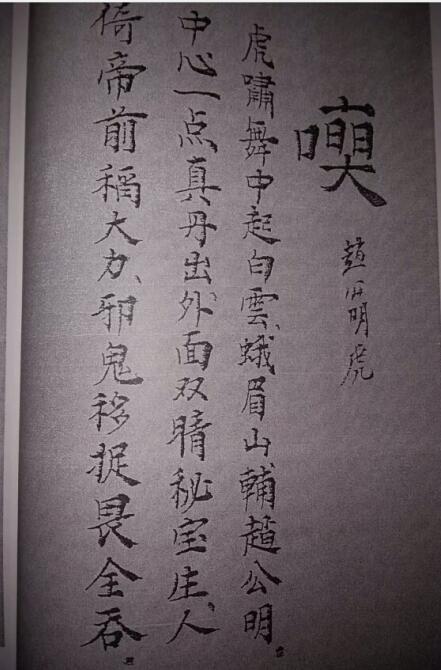 趙公明虎
虎嘯舞中起白雲、蛾眉山輔趙公明
中心一点真丹出外面双睛秘宝生、人
倚帝前稱大力、邪鬼移捉畏全吞